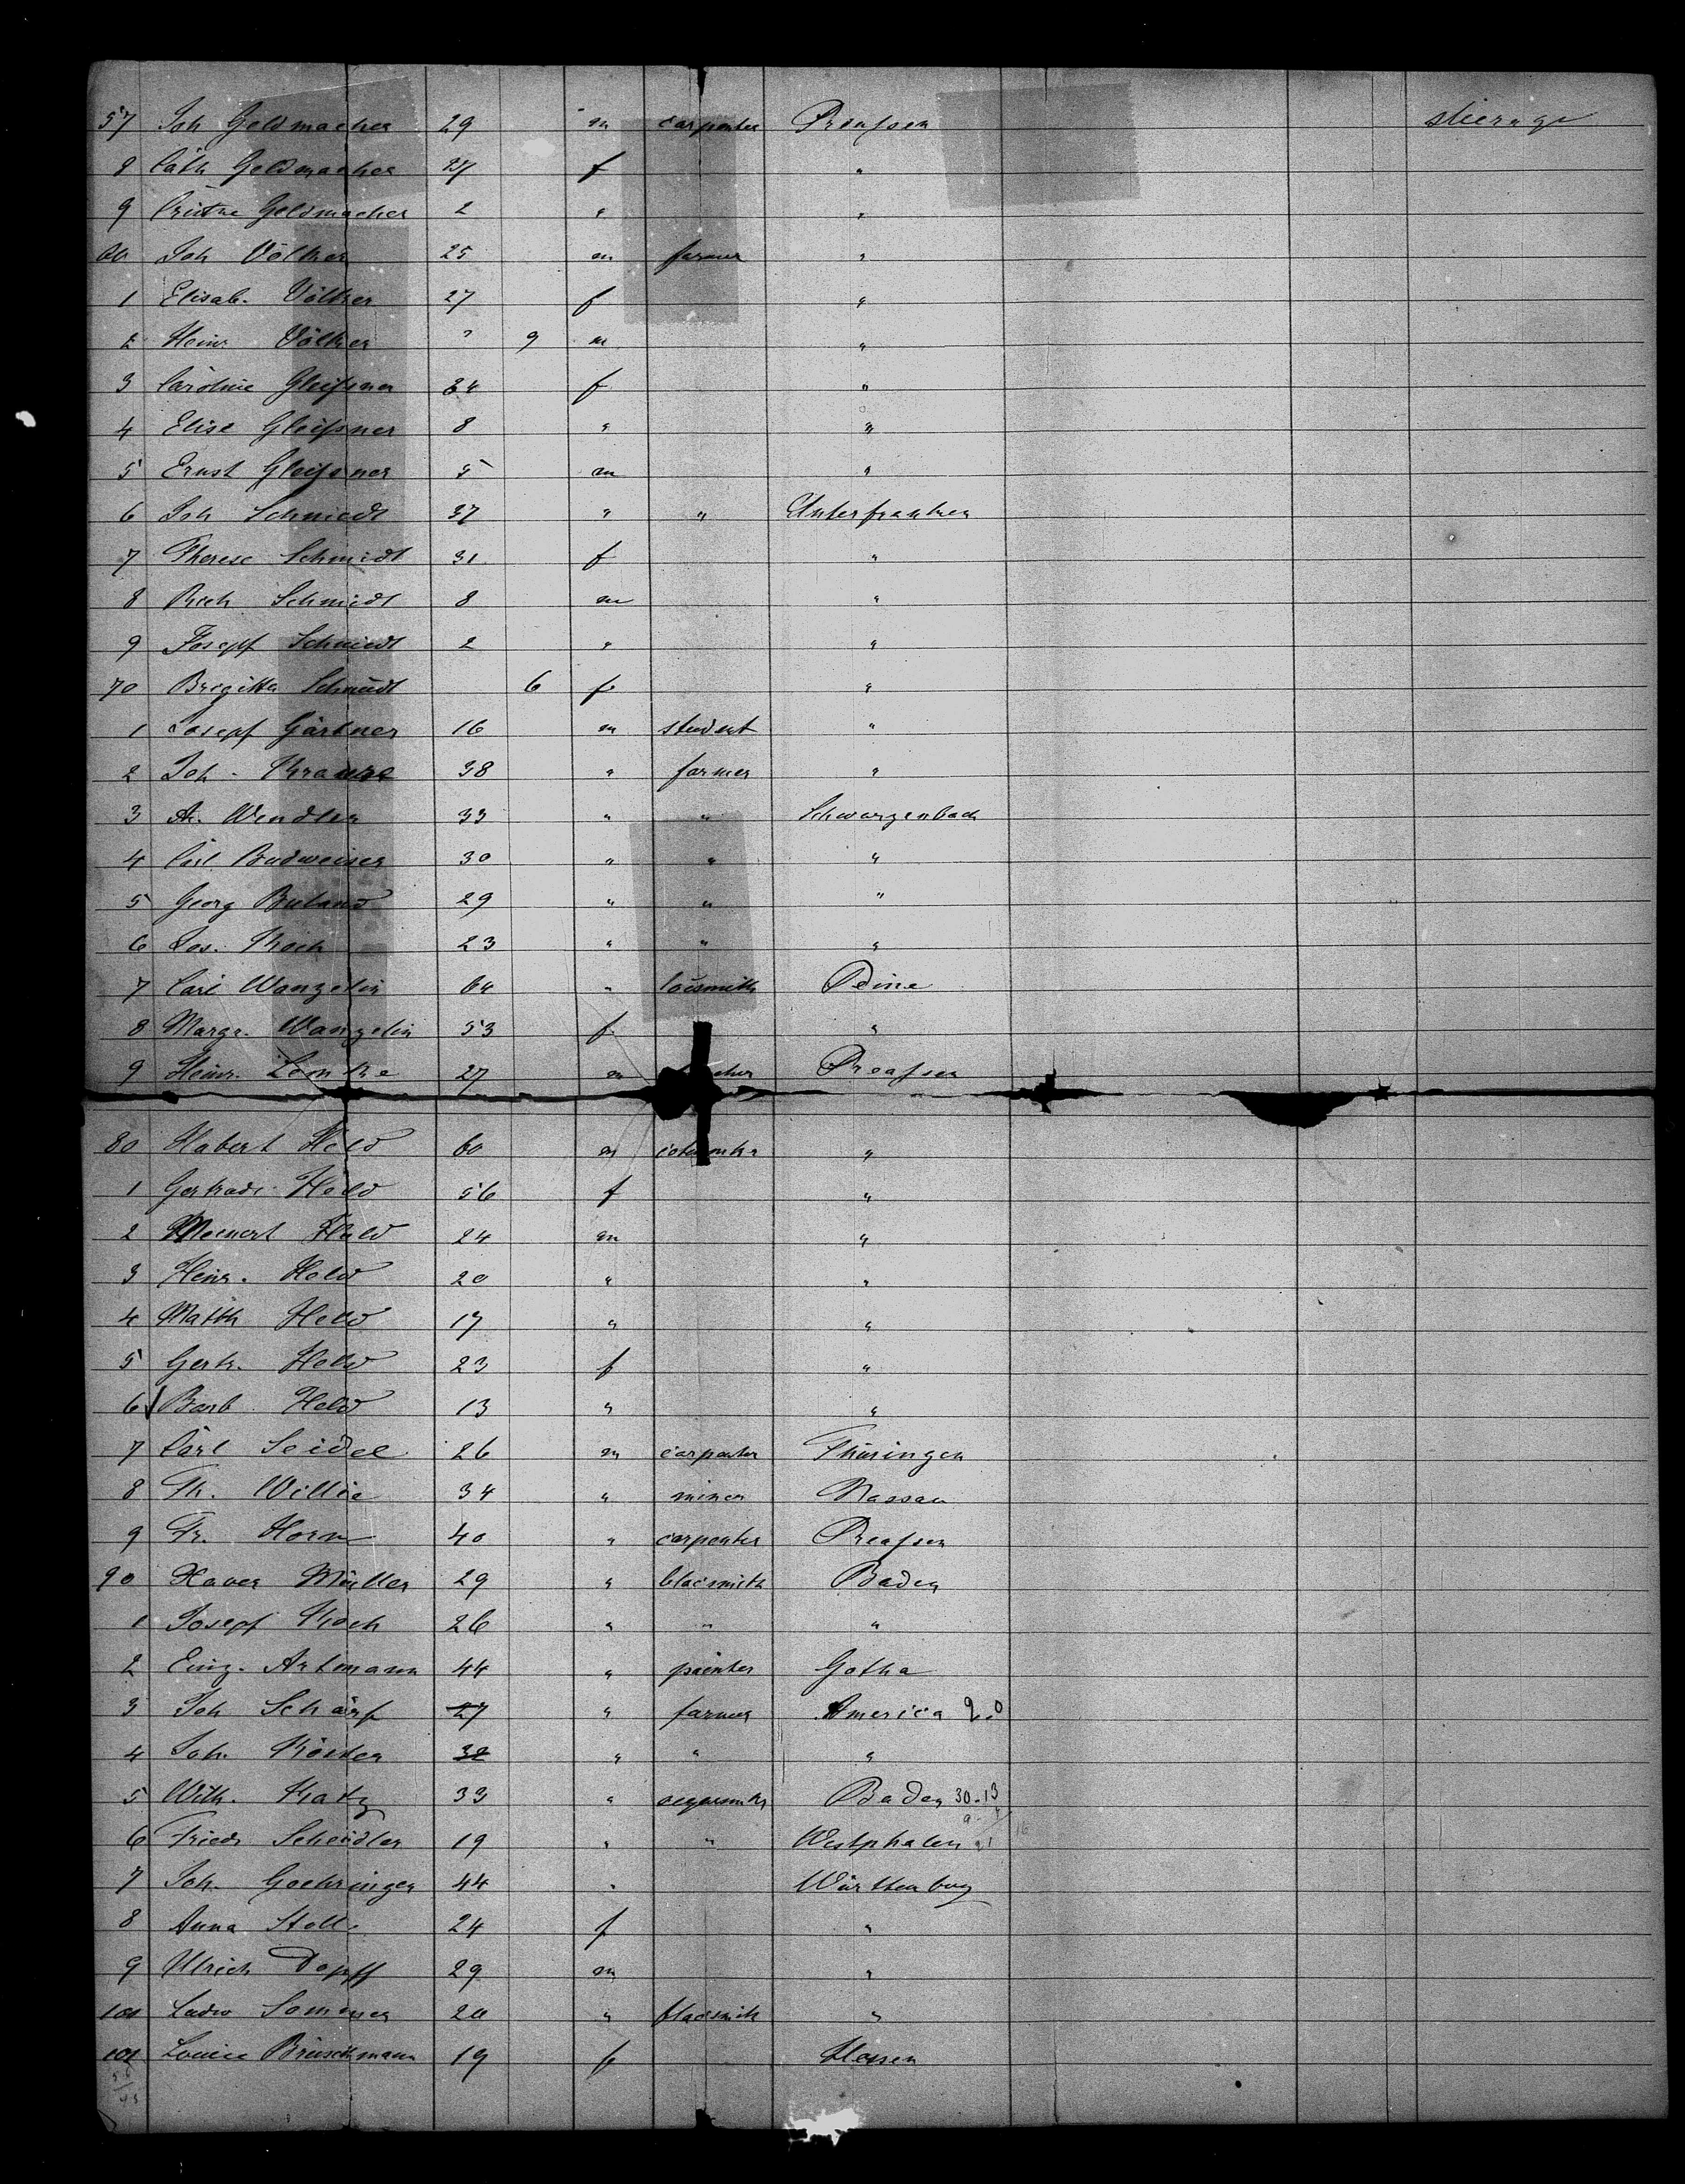 57 Joh Geldmacher 29 m carpenter Preußen steerage
8 Cath Geldmacher 24 f "
9 Geldmacher 2 " "
60 Joh Völker 25 m farmer "
1 Elisab. Völker 27 f "
2 Heinr Völker " 9 m "
3 Caroline Gleißner 24 f "
4 Elise Gleißner 8 " "
5 Ernst Gleißner 5 m "
6 Joh Schmiedt 37 " " Unterfranken
7 Therese Schmidt 31 f "
8 Schmidt 8 m "
9 Josepf Schmiedt 2 " "
70 Brigitta Schmidt 6 f "
1 Josepf Gärtner 16 m student "
2 Joh. Krause 38 " farmer "
3 A. Wendler 33 " " Schwarzenbach
4 Carl Budweiser 30 " " "
5 Georg Buland 29 " " "
6 Jos. Koch 23 " " "
7 Carl Wangelin 64 " locsmith Peine
8 Margr. Wangelin 53 f "
9 Heinr. Lemke 27 m Preaßen
80 Hubert Held 60 m "
1 Gertrude Held 56 f "
2 Meinert Held 24 m "
3 Heinr. Held 20 " "
4 Matth Held 17 " "
5 Gertr. Held 23 f "
6 Barb. Held 13 " "
7 Carl Seidel 26 m carpenter Thüringen
8 Th. Willie 34 " miner Nassau
9 Fr. Horn 40 " carpenter Preaßen
90 Xaver Müller 29 " blacsmith Baden
1 Josepf Koch 26 " " "
2 Artmann 44 " painter Gotha
3 Joh Schärf 27 " farmer America
4 Joh. Köster 32 " " "
5 Wilh. Katz 33 " Baden 30-13
6 Friedr Scheidler 19 " " Westphalen
7 Joh. Goehringer 44 " Württenburg
8 Anna Stoll 24 f "
9 Ulrich Dopff 29 m "
100 Ludw Sommer 20 " blacsmith "
101 Louise Brüschmann 19 f Hessen